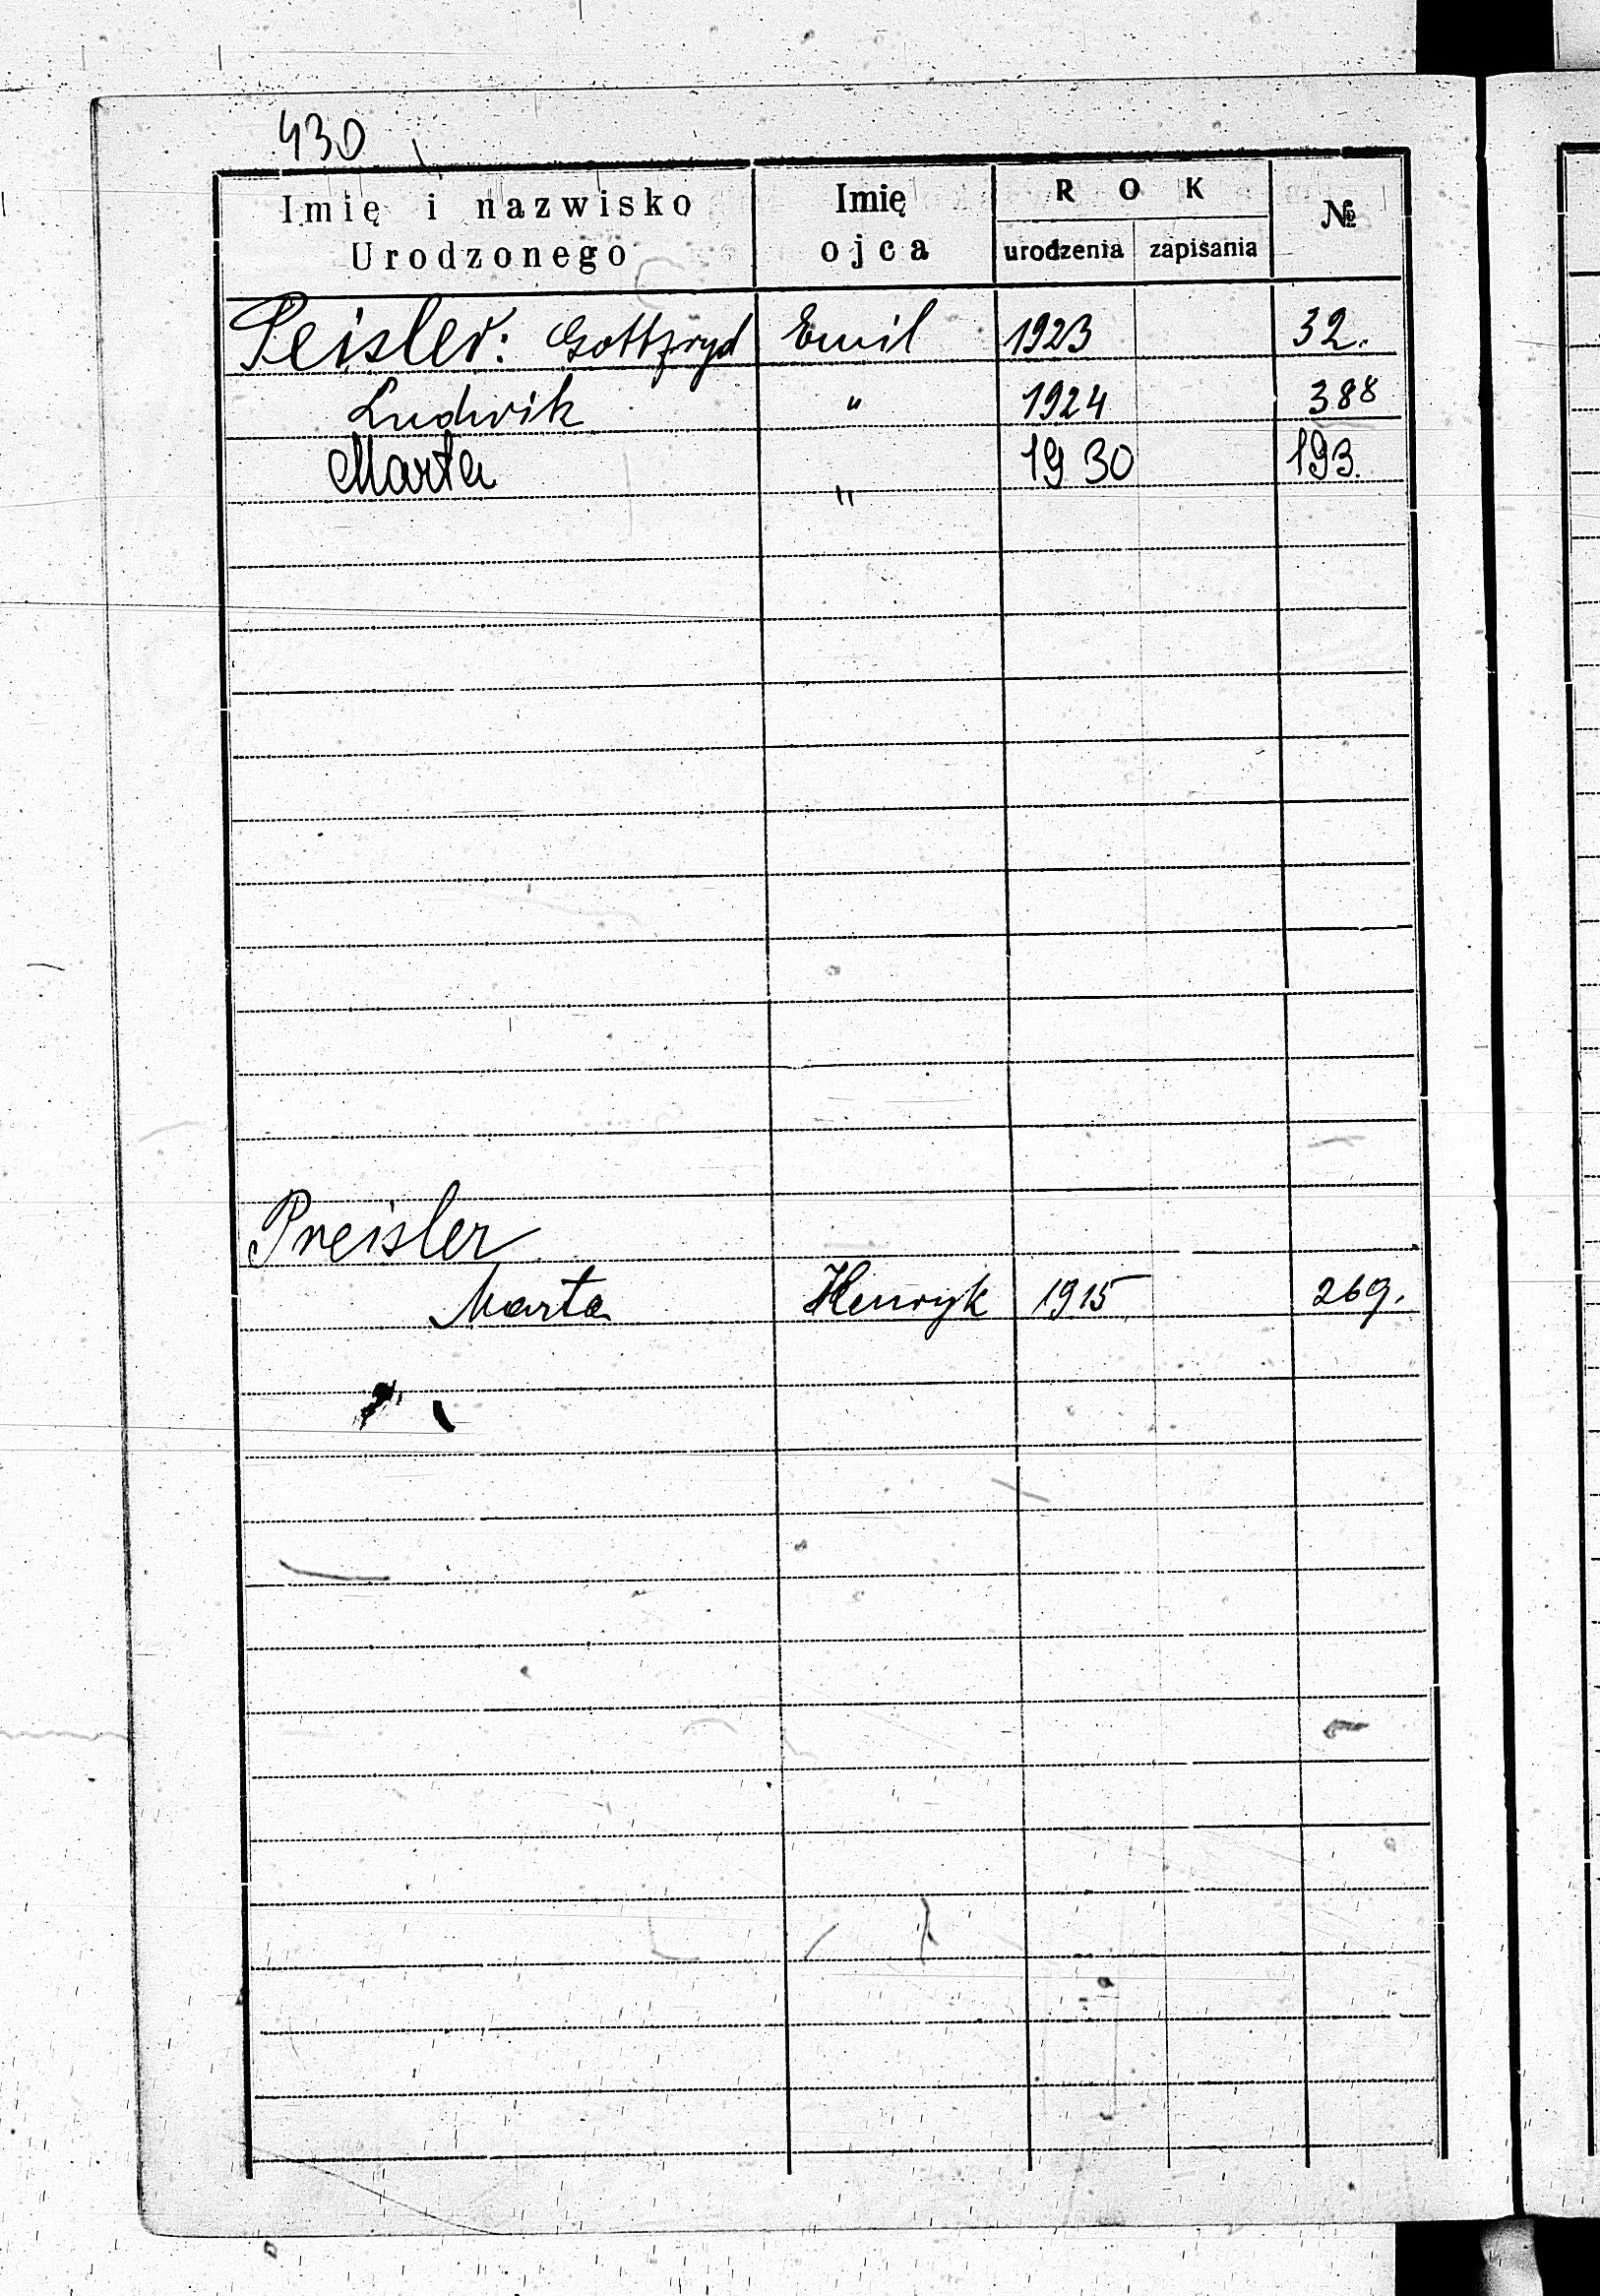 430
Imię i nazwisko Urodzonego Imię ojca ROK urodzenia zapisania №
Peisler: Gottfryd Emil 1923 32.
Ludwik " 1924 388
Marta " 1930 193.
Preisler
Marta Henryk 1915 269.